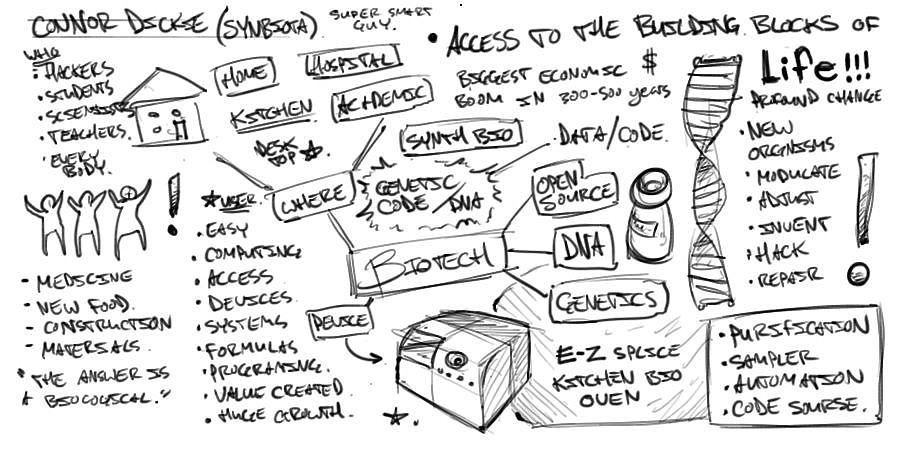 CONNOR DICKIE (SYNBIOTA)
SUPER SMART
GUY.
• ACCESS TO THE BUILDING BLOCKS OF
Life!!!
BIGGEST ECONOMIC $
BOOM IN 300-500 YEARS
PROFOUND CHANGE
• NEW
ORGNISMS
• MODULATE
• ADJUST
• INVENT
• HACK
• REPAIR
WHO
• HACKERS
• STUDENTS
• SCIENTISTS
• TEACHERS.
• EVERY
BODY.
HOME
HOSPITAL
KITCHEN
ACADEMIC
DESK
TOP
WHERE
SYNTH BIO
DATA/CODE.
GENETIC
CODE/DNA
OPEN
SOURCE
BIOTECH
DNA
GENETICS
DEVICE
USER.
• EASY
• COMPUTING
• ACCESS
• DEVICES.
• SYSTEMS
• FORMULAS
• PROGRAMING.
• VALUE CREATED
• HUGE GROWTH.
- MEDICINE
- NEW FOOD.
- CONSTRUCTION
- MATERIALS.
"THE ANSWER IS
BIOLOGICAL."
E-Z SPLICE
KITCHEN BIO
OVEN
• PURIFICATION
• SAMPLER
• AUTOMATION
• CODE SOURSE.